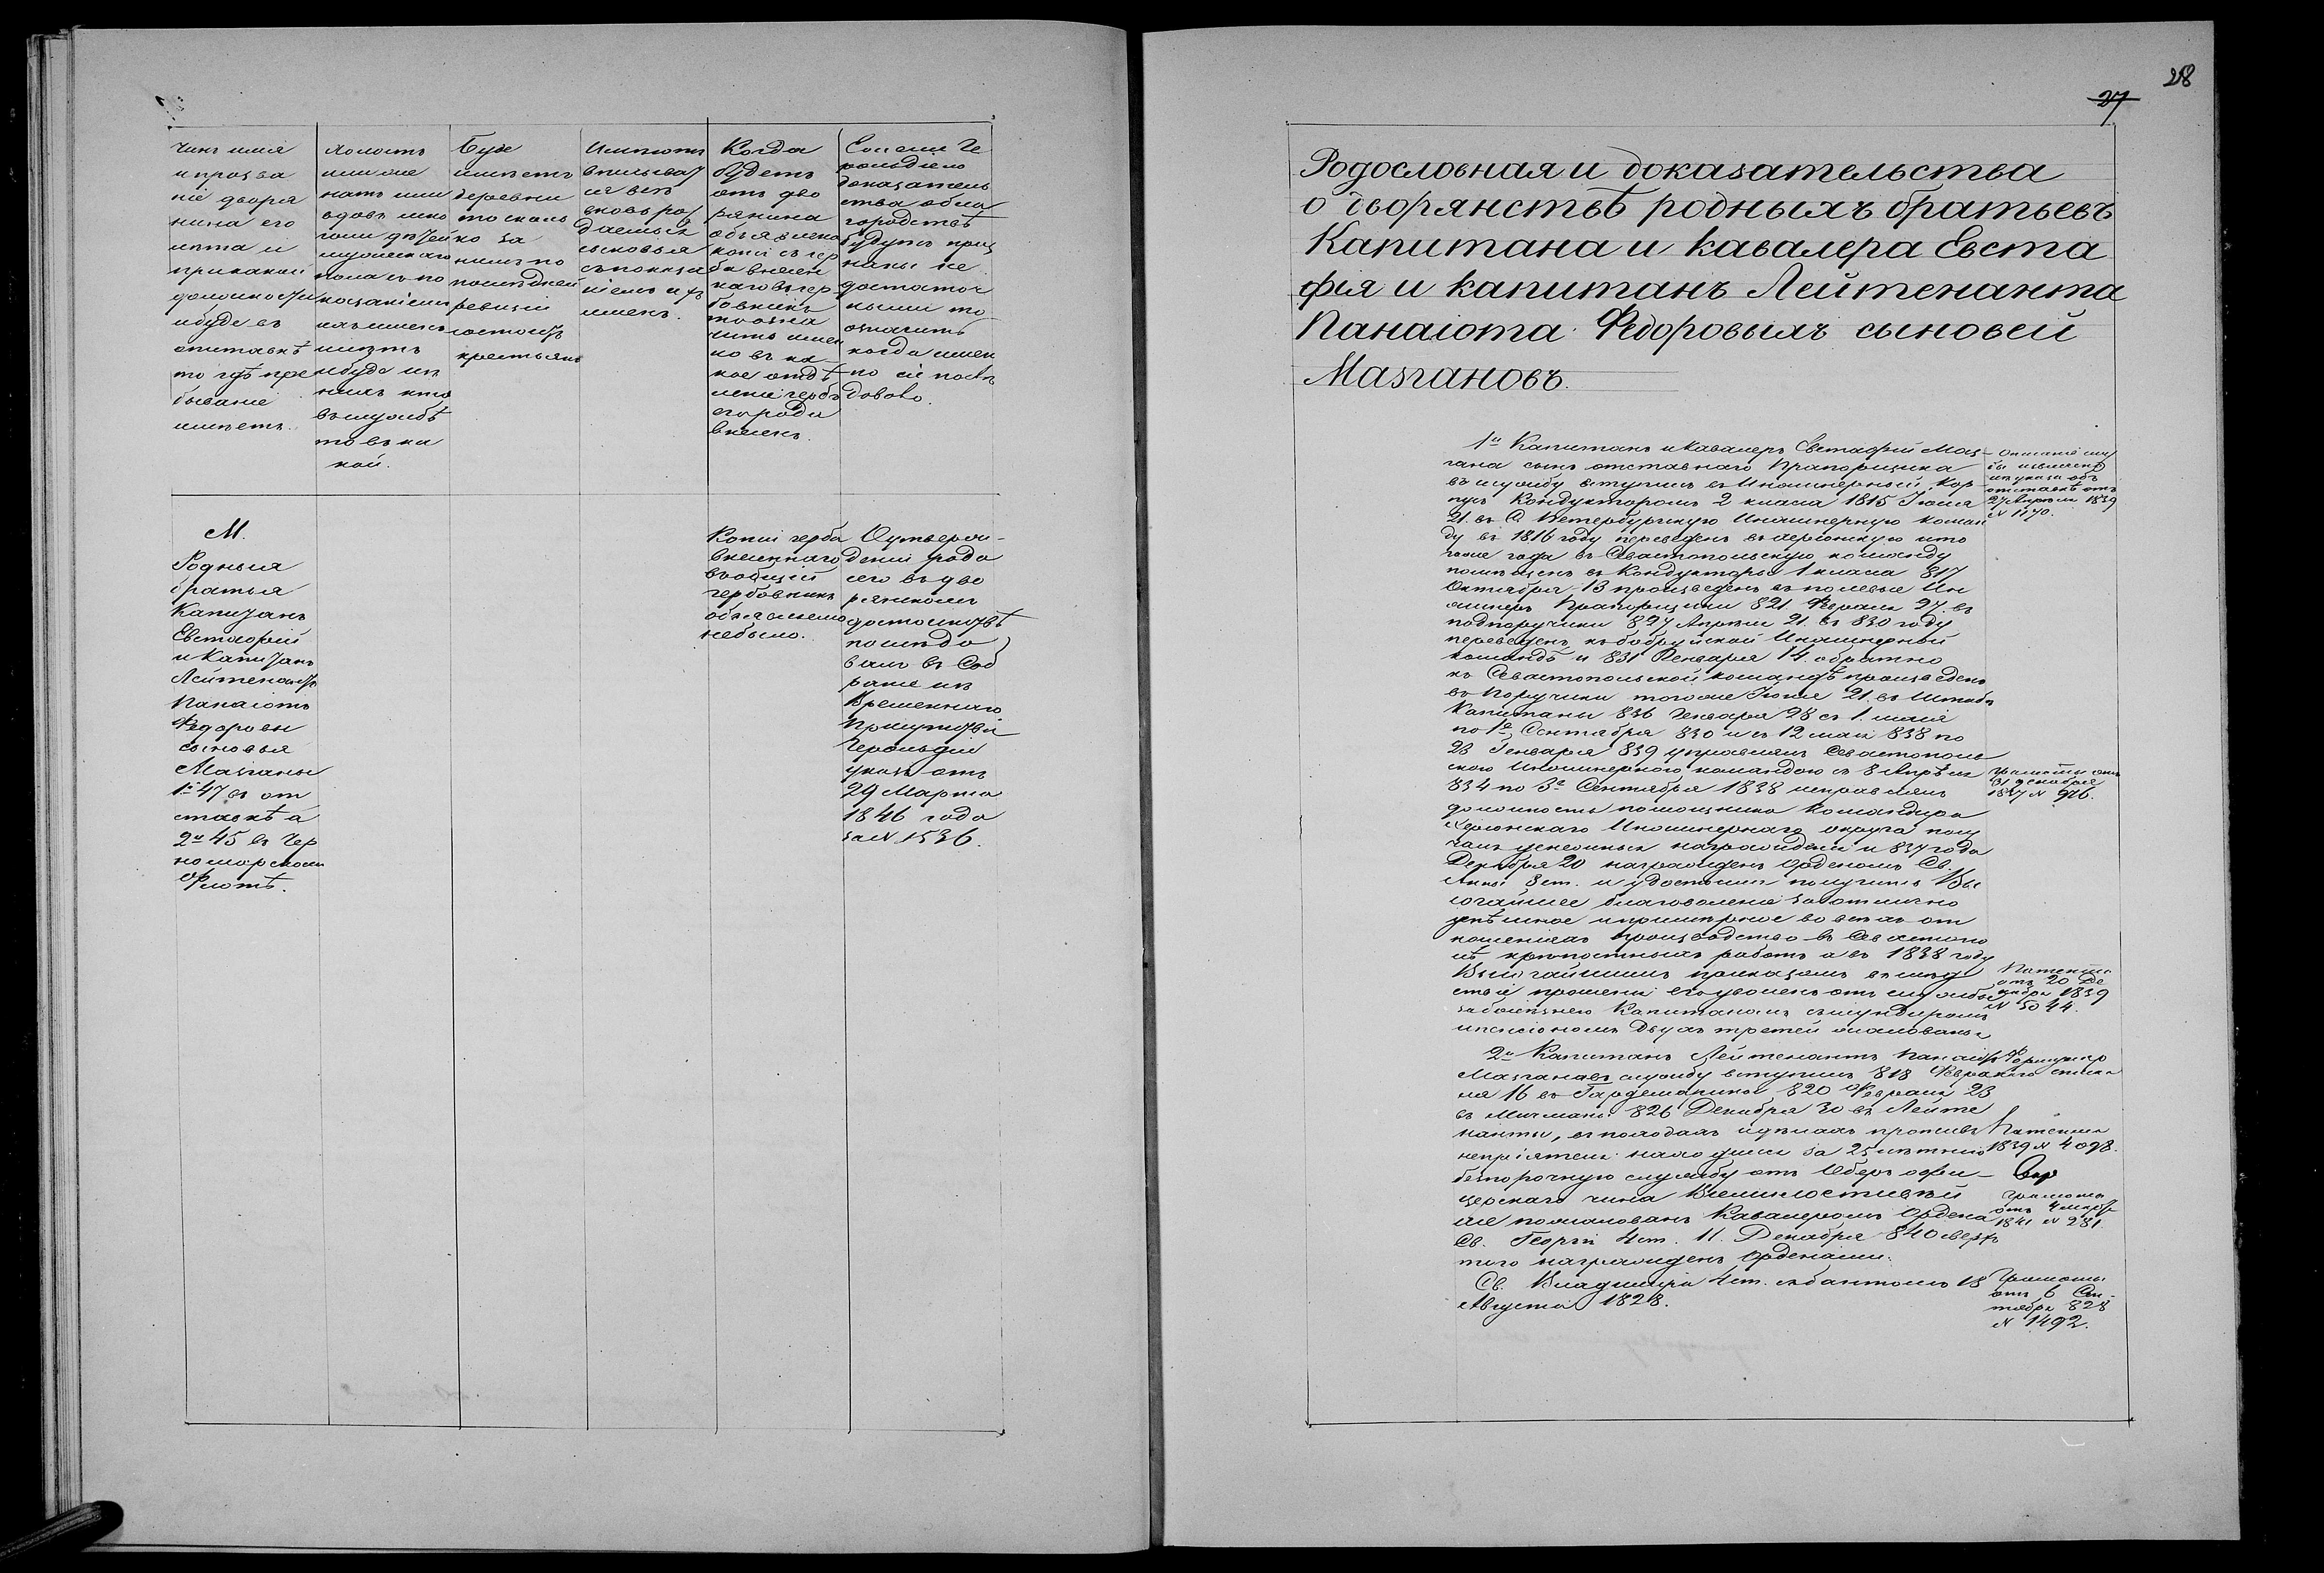 28
27
Чинъ имя
и прозва
ніе дворя
нина его
лѣта и
при какой
должности
и буде въ
отставкѣ
то гдѣ пре
бываніе
имѣетъ.
холостъ
или же
натъ или
вдовъ мно
голи дѣтей
мужескаго
пола съ по
казаніемъ
ихъ именъ
и лѣтъ
и буде изъ
нихъ кто
въ службѣ
то въ ка
кой.
Буде
имѣетъ
деревни
то сколь
ко за
нимъ по
послѣдней
ревизіи
состоитъ
крестьянъ
Имѣютъ
вписыват
ся всѣ
вновь рож
даемыя
сыновья
съ показа
ніемъ ихъ
именъ.
Когда
будетъ
отъ дво
рянина
объявлена
копія съ гер
ба внесен
наго въ гер
бовникъ
то озна
чить имен
но въ ка
кое отдѣ
леніе гербъ
его рода
внесенъ.
Если Ге
рольдіею
доказатель
ства о бла
городствѣ
будутъ приз
наны не
достаточ
ными то
означить
когда имен
но сіе послѣ
довало.
М.
Родныя
братья
Капитанъ
Евстафій
и Капитанъ
Лейтенантъ
Панаіотъ
Федоровы
сыновья
Мазганы
1й 47 въ от
ставкѣ а
2й 45 въ Чер
номорскомъ
Флотѣ.
Копіи герба
внесеннаго
въ общій
гербовникъ
объявлено
небыло.
О утверж-
деніи рода
сего въ дво
рянскомъ
достоинствѣ
послѣдо
валъ въ Соб
раніе изъ
Временнаго
Присутствія
Герольдіи
указъ отъ
29 Марта
1846 года
за N 1536.
Родословная и доказательства
о дворянствѣ родныхъ братьевъ
Капитана и кавалера Евста
фія и капитанъ Лейтенанта
Панаіота Федоровыхъ сыновей
Мазгановъ.
1й Капитанъ и Кавалеръ Евстафій Маз-
гана сынъ отставнаго Прапорщика
въ службу вступилъ въ Инженерный Кор-
пусъ Кондукторомъ 2 класа 1815 Іюля
21. въ С. Петербургскую Инженерную коман
ду въ 1816 году переведенъ въ херсонскую и то
гоже года въ Севастпольскую команду
помѣщенъ въ Кондукторы 1 класа 817
Октября 13 произведенъ въ полевые Ин
женеръ Прапорщики 821 Февраля 27. въ
подпоручики 827 Апрѣля 21. въ 830 году
переведенъ къ бобруйской Инженерной
командѣ и 831 Генваря 14. обратно
къ Севастопольской командѣ произведенъ
въ Поручики тогоже Іюля 21. въ Штабсъ
Капитаны 836 Генваря 28 съ 1. мая
по 1е Сентября 830 и съ 12 мая 838 по
23 Генваря 839 управлялъ Севастополь
скою Инженерною командою съ 8 Апрѣля
834 по 3е Сентября 1838 исправлялъ
должность помощника Командира
Херсонскаго Инженернаго округа полу
чалъ денежныя награжденія и 837 года
Декабря 20 награжденъ орденомъ Св.
Анны 3 ст. и удостоился получить Вы
сочайшее благоволеніе за отлично
успѣшное и примѣрное во всѣхъ от
ношеніяхъ производство въ Севастопо
лѣ крѣпостныхъ работъ а въ 1838 году
Высочайшимъ приказомъ въ слѣд
ствіе прошенія его уволенъ отъ службы
за болѣзнію Капитаномъ съ мундиромъ
и пенсіономъ двухъ третей жалованья
Описаніе служ
бы извлечено
изъ указа объ
отставкѣ отъ
27 Апрѣля 1839
N 1170.
Грамоты отъ
31 декабря
1837 N 926.
Патентъ
отъ 20 Де
кабря 1839
N 5044.
2й Капитанъ Лейтенантъ Панаіотъ
Мазгана въ службу вступилъ 818 Февра
ля 16 въ Гардемарины 820 Февраля 23
въ Мичмана 826 Декабря 30 въ Лейте
нанты, въ походахъ и дѣлахъ противъ
непріятеля находился за 25 лѣтнюю
безпорочную службу отъ Оберъ офи-
церскаго чина Всемилостивѣй
ше пожалованъ Кавалеромъ Ордена
Св. Георгія 4 ст. 11. Декабря 840 сверхъ
того награжденъ Орденами.
Св. Владиміра 4 ст. съ бантомъ 18
Августа 1828.
Формуляр
наго списка
Патентъ
1839 N 4098.
Грамота
1841 N 281.
Грамоты
отъ 6 Сен-
тября 828
N 1492.